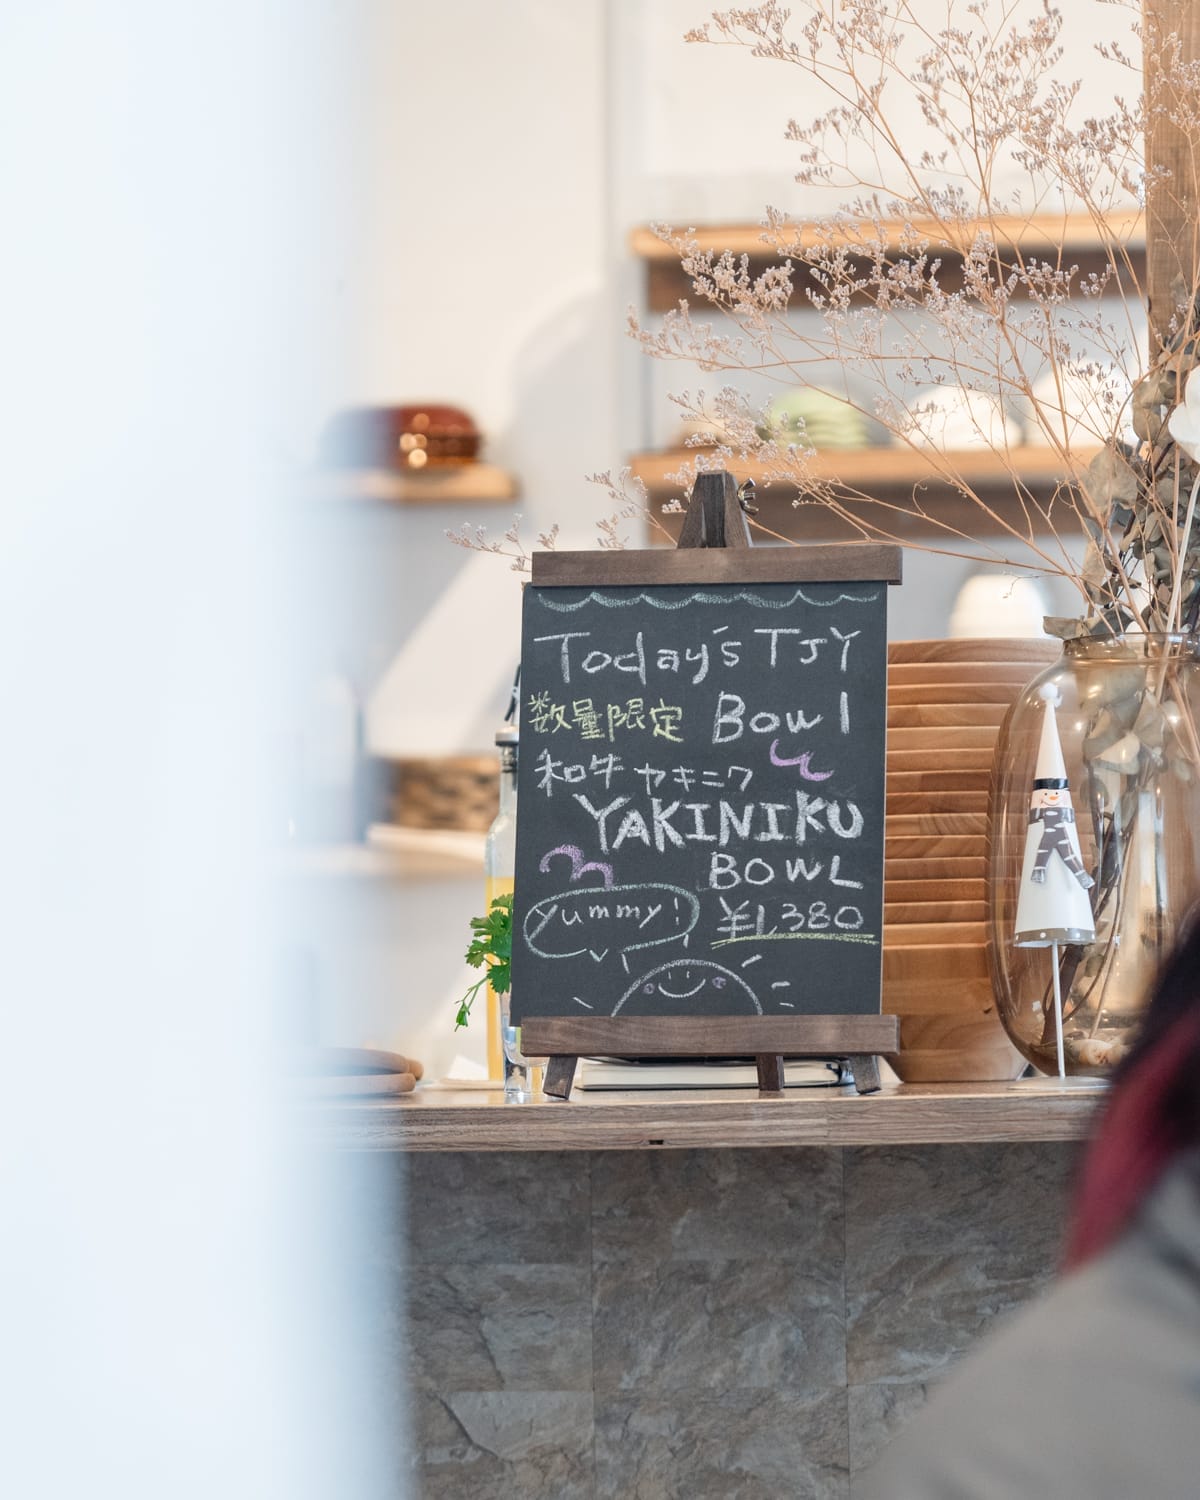 Today's TJY
数量限定 Bowl
和牛ヤキニク
YAKINIKU
BOWL
yummy!
¥1,380